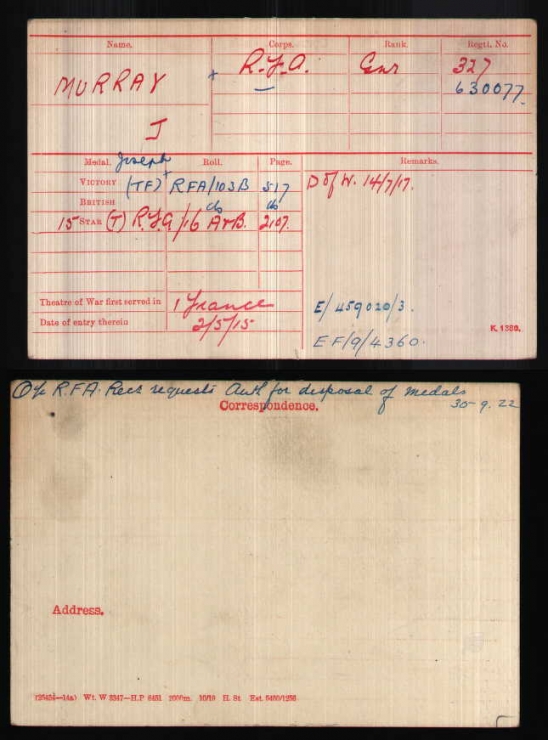 Name. Corps. Rank. Regtl. No.
MURRAY + R.F.A. Gnr 327
630077.
J
Medal. Joseph Roll. Page. Remarks.
VICTORY (TF) + RFA/103B 517 D of W. 14/7/17.
BRITISH do do
15 STAR (T) R.F.A/16 A+B. 2107.
Theatre of War first served in 1 France E/459020/3.
Date of entry therein 2/5/15 K. 1380.
E.F/9/4360.
O i/c R.F.A. Recs requests Auth for disposal of medals
Correspondence. 30-9.22
Address.
Wt. W 5347—H.P 10/19 H. St